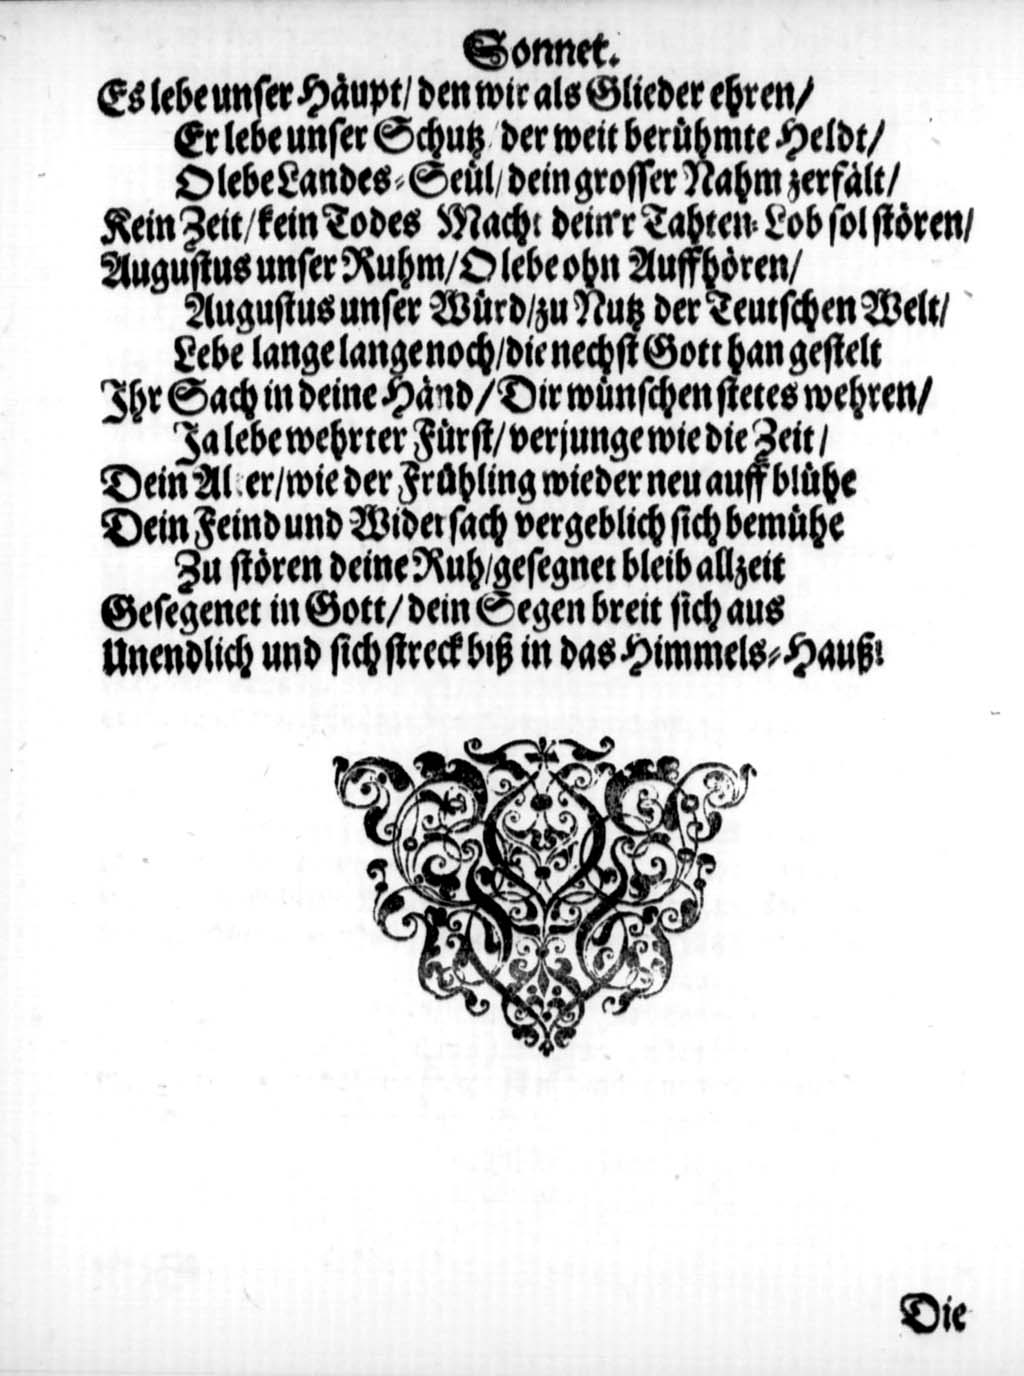 Sonnet.
Es lebe unser Häupt/ den wir als Glieder ehren/
Er lebe unser Schutz/ der weit berühmte Heldt/
O lebe Landes-Seül/ dein grosser Nahm zerfält/
Kein Zeit/ kein Todes Macht dein'r Tahten-Lob sol stören/
Augustus unser Ruhm/ O lebe ohn Auffhören/
Augustus unser Würd/ zu Nutz der Teutschen Welt/
Lebe lange lange noch/ die nechst Gott han gestelt
Ihr Sach in deine Händ/ Dir wünschen stetes wehren/
Ja lebe wehrter Fürst/ verjunge wie die Zeit/
Dein Alter/ wie der Frühling wieder neu auff blühe
Dein Feind und Widersach vergeblich sich bemühe
Zu stören deine Ruh/ gesegnet bleib allzeit
Gesegenet in Gott/ dein Segen breit sich aus
Unendlich und sich streck biß in das Himmels-Hauß!
Die